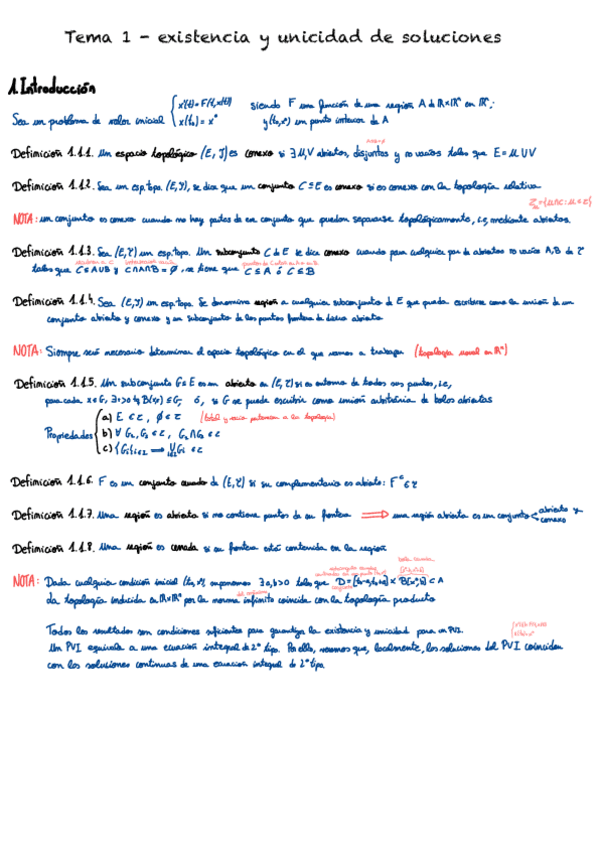 Tema 1 - existencia y unicidad de soluciones
1. Introducción
Sea un problema de valor inicial { x'(t) = F(t, x(t)) siendo F una función de una región A de ℝ×ℝⁿ en ℝⁿ;
x(t₀) = x⁰ y (t₀, x⁰) un punto interior de A
Definición 1.1.1. Un espacio topológico (E, J) es conexo si ∄ U, V abiertos, disjuntos y no vacíos tales que E = U ∪ V
Definición 1.1.2. Sea un esp. topo. (E, J), se dice que un conjunto C ⊆ E es conexo si es conexo con la topología relativa
NOTA: un conjunto es conexo cuando no hay partes de ese conjunto que puedan separarse topológicamente, i.e, mediante abiertos.
Definición 1.1.3. Sea (E, τ) un esp. top. Un subconjunto C de E se dice conexo cuando para cualquier par de abiertos no vacíos A, B de τ
tales que C ⊆ A ∪ B y C ∩ A ∩ B = ∅, se tiene que C ⊆ A ó C ⊆ B
Definición 1.1.4. Sea (E, J) un esp. top. Se denomina región a cualquier subconjunto de E que pueda escribirse como la unión de un
conjunto abierto y conexo y un subconjunto de los puntos frontera de dicho abierto
NOTA: Siempre será necesario determinar el espacio topológico en el que vamos a trabajar (topología usual en ℝⁿ)
Definición 1.1.5. Un subconjunto G ⊆ E es un abierto en (E, τ) si es entorno de todos sus puntos, i.e,
para cada x ∈ G, ∃ r>0 tq B(x,r) ⊆ G; ó, si G se puede escribir como unión arbitraria de bolas abiertas
Propiedades { a) E ∈ τ, ∅ ∈ τ (total y vacío pertenecen a la topología)
b) ∀ G₁, G₂ ∈ τ, G₁ ∩ G₂ ∈ τ
c) {Gᵢ}ᵢ∈I ⟹ ∪ Gᵢ ∈ τ
Definición 1.1.6. F es un conjunto cerrado de (E, τ) si su complementario es abierto: Fᶜ ∈ τ
Definición 1.1.7. Una región es abierta si no contiene puntos de su frontera ⟹ una región abierta es un conjunto abierto y conexo
Definición 1.1.8. Una región es cerrada si su frontera está contenida en la región
bola cerrada
NOTA: Dada cualquier condición inicial (t₀, x⁰), suponemos ∃ a, b > 0 tales que D = [t₀-a, t₀+a] × B[x⁰, b] ⊂ A
La topología inducida en ℝ×ℝⁿ por la norma infinito coincide con la topología producto
Todos los resultados son condiciones suficientes para garantizar la existencia y unicidad para un PVI.
Un PVI equivale a una ecuación integral de 2º tipo. Por ello, veremos que, localmente, las soluciones del PVI coinciden
con las soluciones continuas de una ecuación integral de 2º tipo.